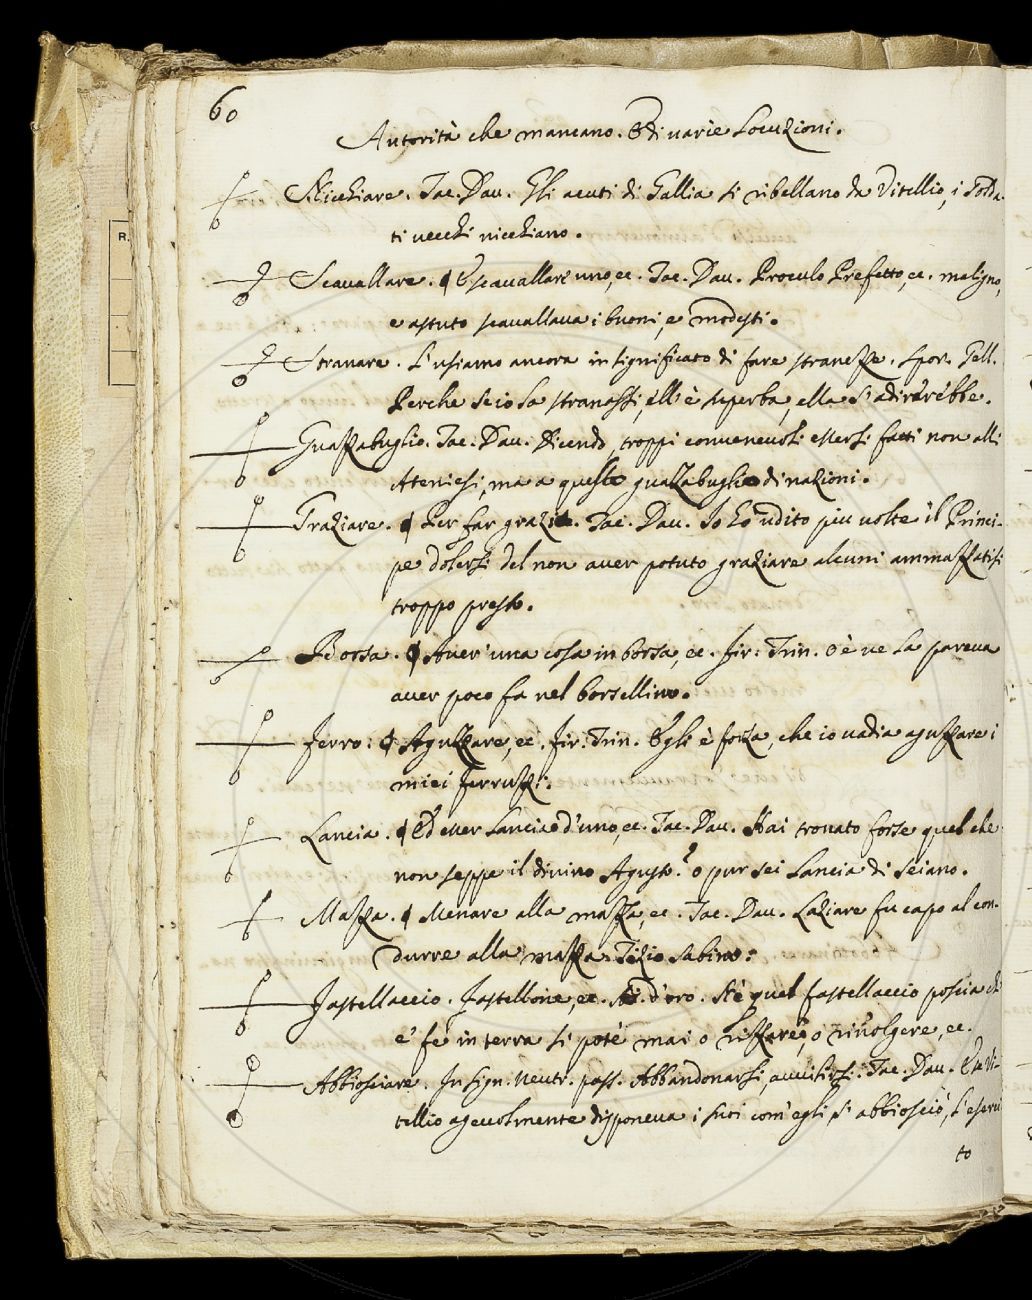 60
Autorità che mancano. E di varie Locuzioni.
Nicchiare. Tac. Dav. Gli aiuti di Gallia si ribellano da Vitellio, i solda-
ti vecchi nicchiano.
Scavallare. ¶ E scavallare uno, ec. Tac. Dav. Proculo Prefetto, ec. maligno,
e astuto scavallava i buoni, e modesti.
Stranare. L'usiamo ancora in significato di fare stranezze. Spor. Gell.
Perche se io la stranassi, ell'è superba, ella s'adirerebbe.
Guazzabuglio. Tac. Dav. Dicendo, troppi convenevoli essersi fatti non alli
Ateniesi, ma a quello guazzabuglio di nazioni.
Graziare. ¶ Per far grazia. Tac. Dav. Io ho udito piu volte il Princi-
pe dolersi del non aver potuto graziare alcuni ammazzatisi
troppo presto.
Borsa. ¶ Aver' una cosa in borsa, ec. Fir: Trin. O è ve la pareva
aver poco fa nel borsellino.
Ferro: ¶ Aguzzare, ec. Fir: Trin. Egli è forza, che io vadia aguzzare i
miei ferruzzi.
Lancia. ¶ Ed esser Lancia d'uno, ec. Tac. Dav. Hai trovato forse quel che
non seppe il divino Agusto? o pur sei Lancia di Seiano.
Mazza. ¶ Menare alla mazza, ec. Tac. Dav. Laziare fu capo al con-
durre alla mazza Tizio Sabino:
Fastellaccio. Fastellone, ec. d'oro. Nè quel fastellaccio poscia ch'
e' fe' in terra si potè mai o rizzare, o rinvolgere, ec.
Abbiosciare. In sign. neutr. pass. Abbandonarsi, avvilirsi. Tac. Dav. E se Vi-
tellio agevolmente disponeva i suoi com'egli si abbiosciò, l'eserci
to
R.